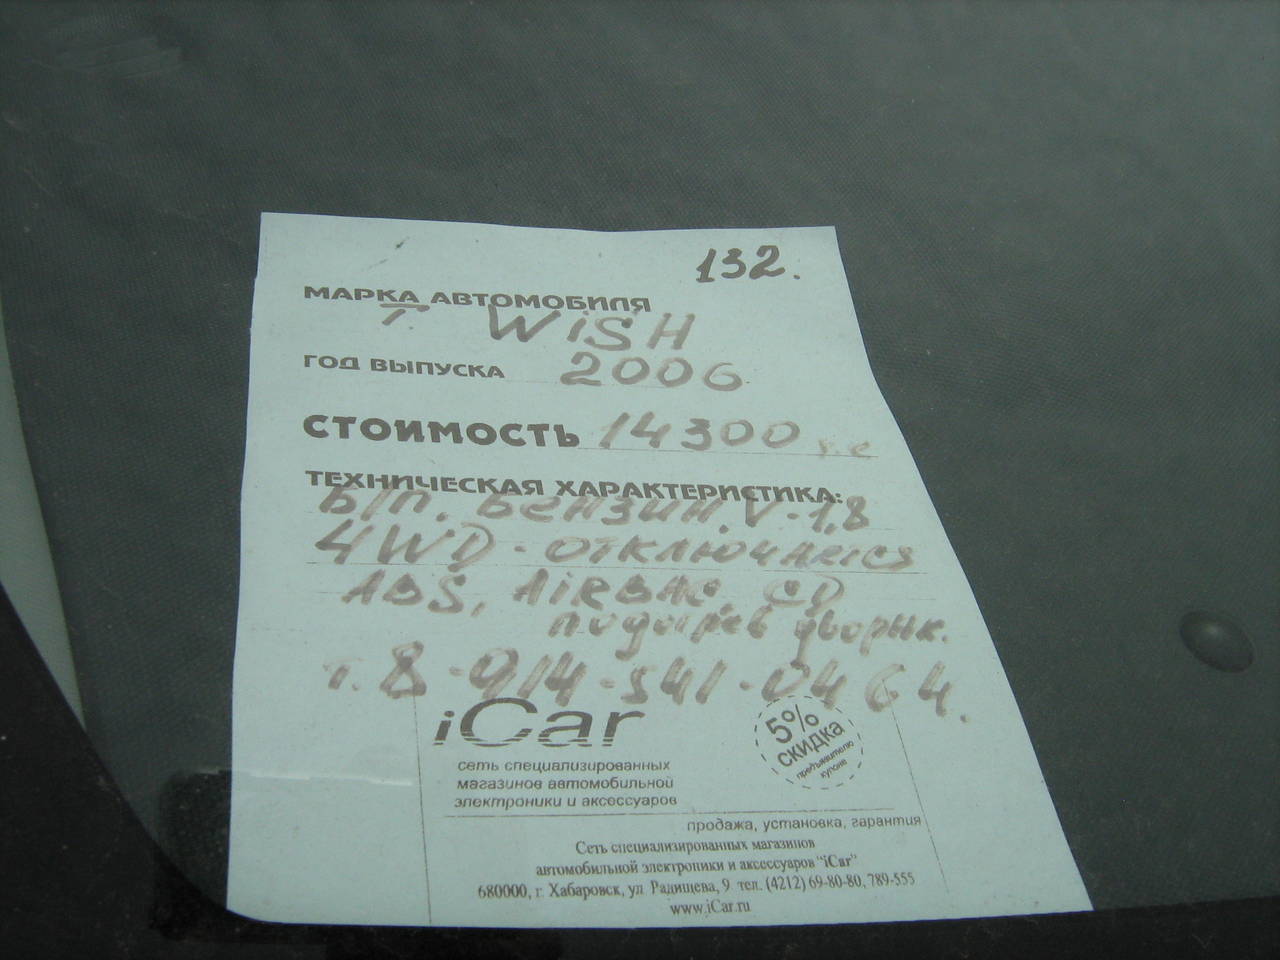 132.
МАРКА АВТОМОБИЛЯ
Т. WiSH
ГОД ВЫПУСКА 2006
СТОИМОСТЬ 14300 у.е
ТЕХНИЧЕСКАЯ ХАРАКТЕРИСТИКА:
Б/П. Бензин, V-1,8
4WD - отключается
ABS, AiRBAG, CD
подогрев дворник.
т. 8-914-541-0464.
iCar
5% СКИДКА предъявителю купона
сеть специализированных
магазинов автомобильной
электроники и аксессуаров
продажа, установка, гарантия
Сеть специализированных магазинов
автомобильной электроники и аксессуаров "iCar"
680000, г. Хабаровск, ул. Радищева, 9 тел. (4212) 69-80-80, 789-555
www.iCar.ru